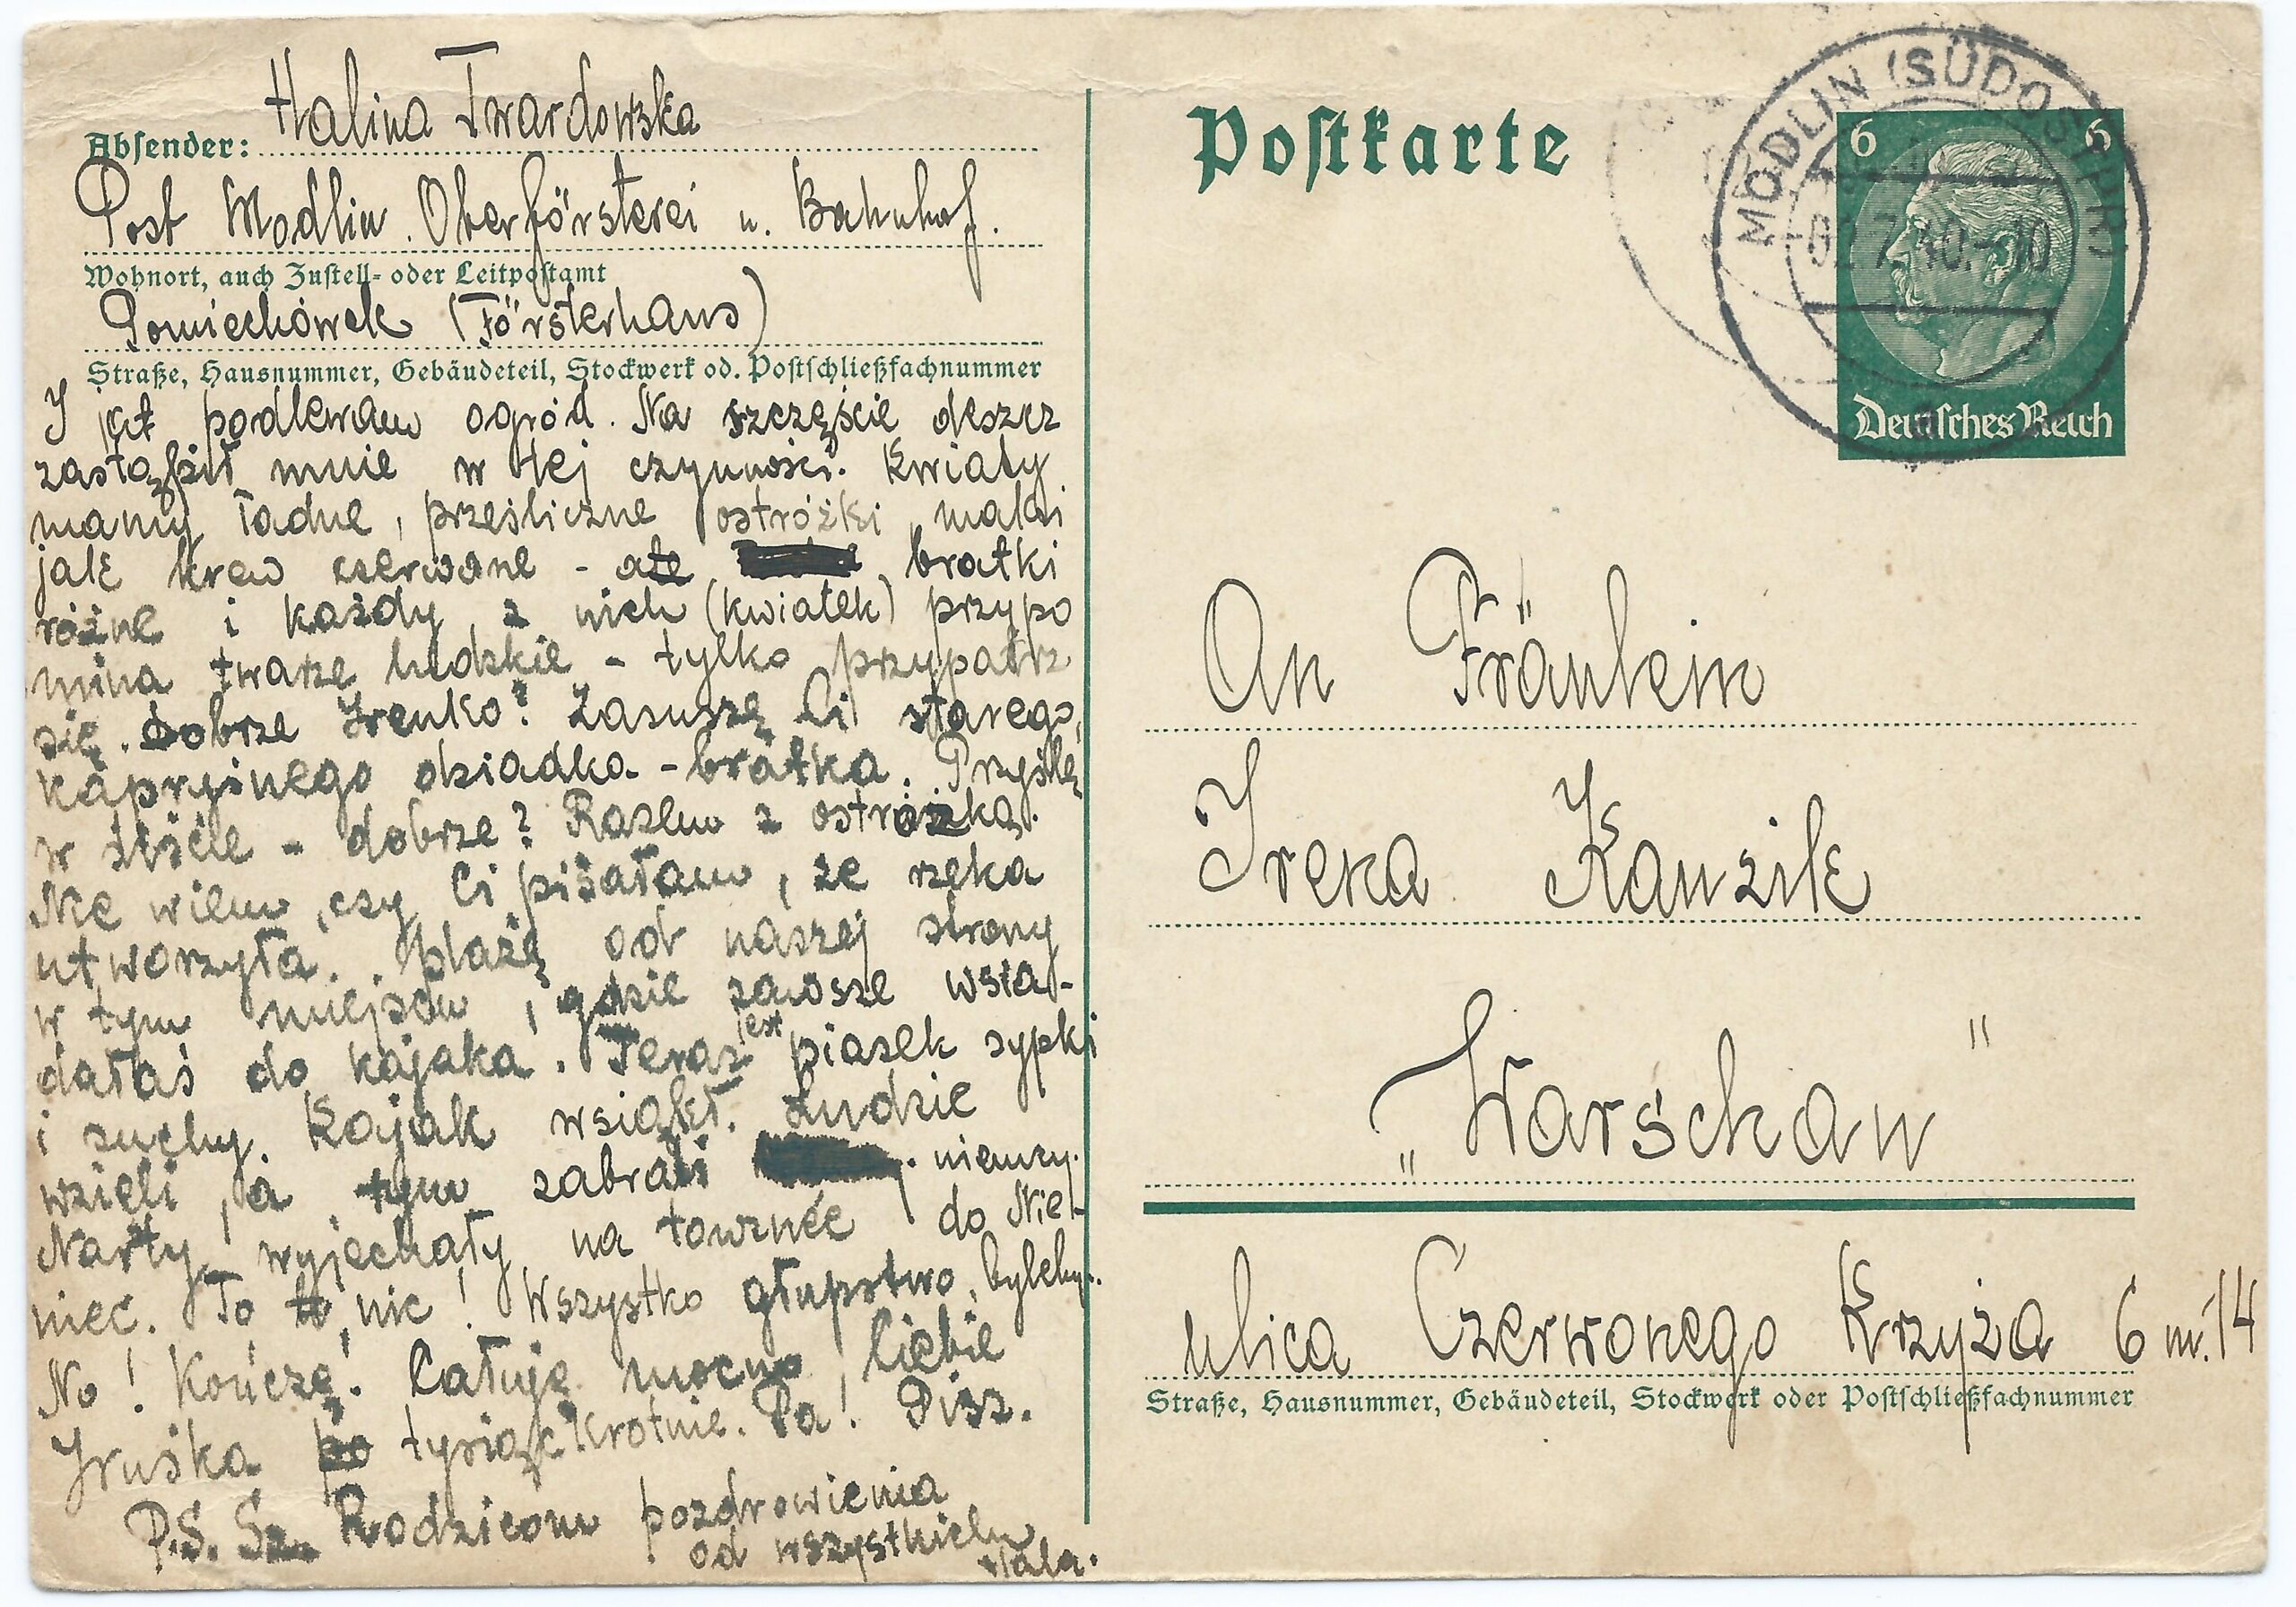 Halina Twardowska
Absender:
Post Modlin. Oberförsterei u. Bahnhof.
Wohnort, auch Zustell- oder Leitpostamt
Pomiechówek (Försterhaus)
Straße, Hausnummer, Gebäudeteil, Stockwerk od. Postschließfachnummer
podlewam ogród. Na szczęście deszcz
zastąpił mnie w tej czynności. Kwiaty
mamy ładne, prześliczne ostróżki, maki
jak krew czerwone - ale bratki
różne i każdy z nich (kwiatek) przypo
mina twarze ludzkie - tylko przypatrz
się. Dobrze Irenko? Zasuszę Ci starego,
kapryśnego dziadka - bratka. Przyślę
w liście - dobrze? Razem z ostróżką.
Nie wiem, czy Ci pisałam, że rzeka
utworzyła plażę od naszej strony
w tym miejscu, gdzie zawsze wsia-
dałaś do kajaka. Teraz jest piasek sypki
i suchy. Kajak wsiąkł. Ludzie
wzieli, a tym zabrali niemcy.
Narty wyjechały na tournée do Nie-
miec. To nic! Wszystko głupstwo, byleby.
No! Kończę. Całuję mocno Ciebie
Iruśka po tysiąckrotnie. Pa! Pisz.
P.S. Sz. Rodzicom pozdrowienia
od wszystkich
Hala.
Postkarte
MODLIN (SÜDOSTPR)
7.40.-10
6 6
Deutsches Reich
An Fräulein
Irena Kanzik
„Warschau"
ulica Czerwonego Krzyża 6 m. 14
Straße, Hausnummer, Gebäudeteil, Stockwerk oder Postschließfachnummer